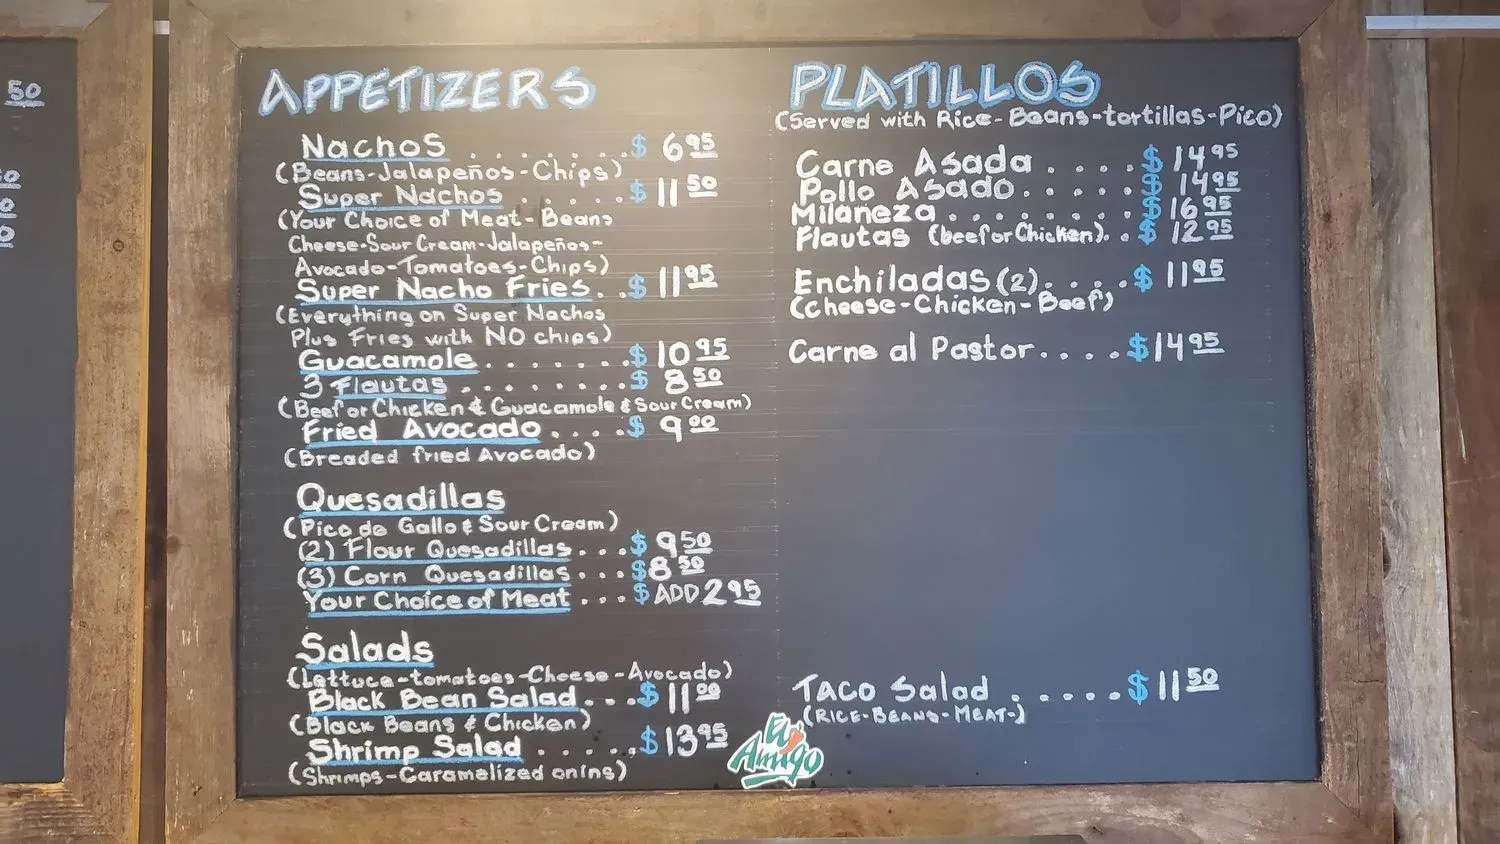 50
APPETIZERS
Nachos . . . . . . . $ 6.95
(Beans-Jalapeños-Chips)
Super Nachos . . . . . $ 11 50
(Your Choice of Meat-Beans
Cheese-Sour Cream-Jalapeños-
Avocado-Tomatoes-Chips)
Super Nacho Fries. . $ 11 95
(Everything on Super Nachos
Plus Fries with NO chips)
Guacamole . . . . . . . $ 10 95
3 Flautas . . . . . . . . $ 8 50
(Beef or Chicken & Guacamole & Sour Cream)
Fried Avocado . . . . $ 9 00
(Breaded fried Avocado)
Quesadillas
(Pico de Gallo & Sour Cream)
(2) Flour Quesadillas . . . $ 9 50
(3) Corn Quesadillas . . . $ 8 50
Your Choice of Meat . . . $ ADD 2 95
Salads
(Lettuce-tomatoes-Cheese-Avocado)
Black Bean Salad . . . $ 11 00
(Black Beans & Chicken)
Shrimp Salad . . . . . $ 13 95
(Shrimps-Caramelized onins)
PLATILLOS
(Served with Rice-Beans-tortillas-Pico)
Carne Asada . . . . $ 14 95
Pollo Asado . . . . . $ 14 95
Milaneza . . . . . . . . $ 16 95
Flautas (beef or Chicken) . . $ 12 95
Enchiladas (2) . . . . $ 11 95
(Cheese-Chicken-Beef)
Carne al Pastor . . . . $ 14 95
TACO Salad . . . . . $ 11 50
(RICE-BEANS-MEAT-)
El Amigo